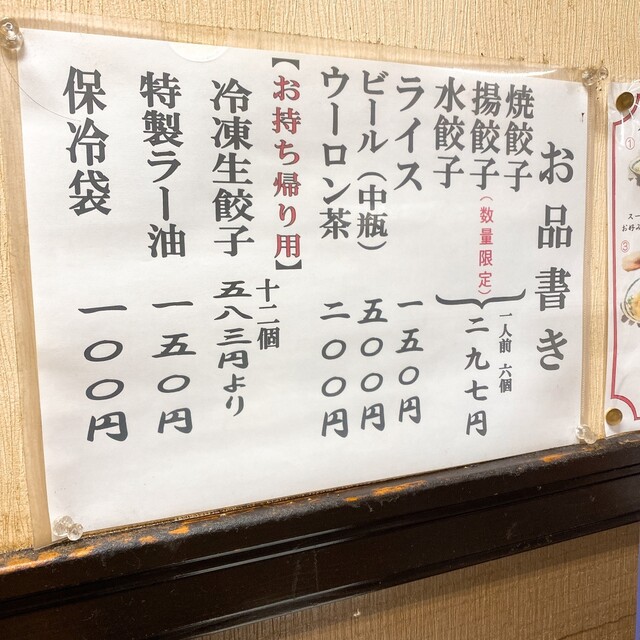 お品書き
焼餃子
揚餃子(数量限定)
水餃子
一人前 六個
二九七円
ライス 一五〇円
ビール(中瓶) 五〇〇円
ウーロン茶 二〇〇円
【お持ち帰り用】
冷凍生餃子 十二個 五八三円より
特製ラー油 一五〇円
保冷袋 一〇〇円
①
③